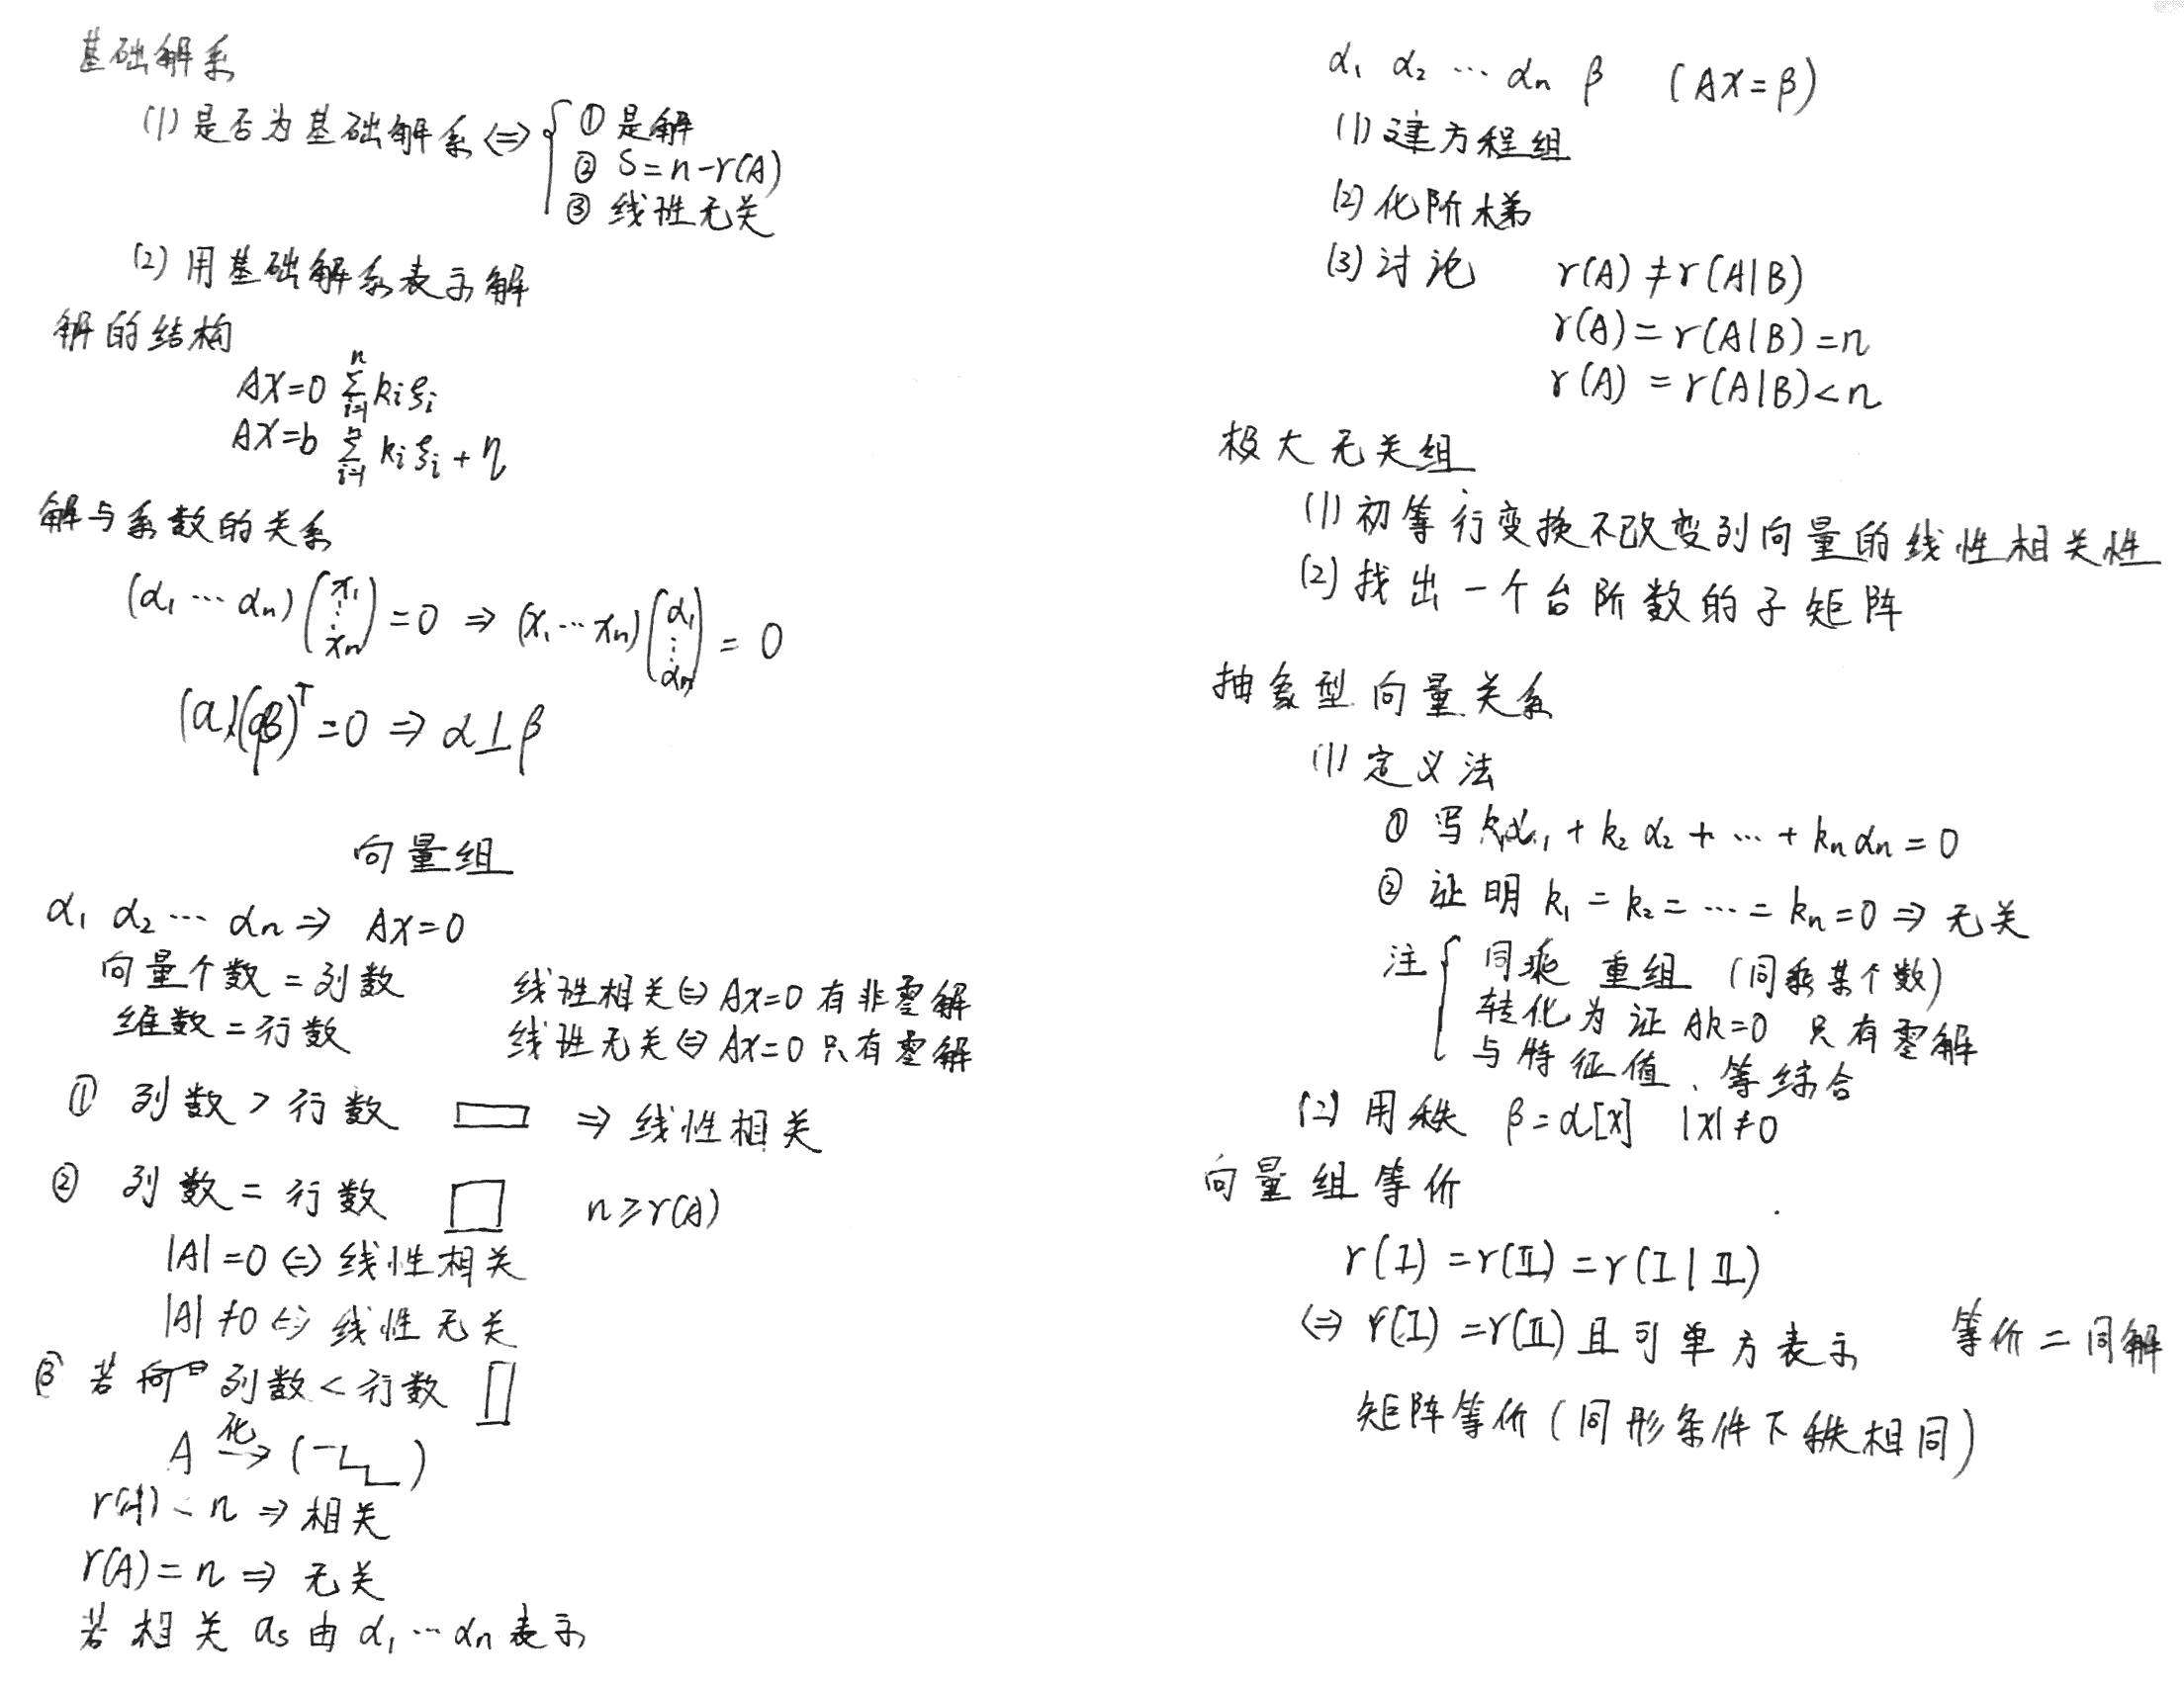 基础解系
(1) 是否为基础解系 ⇔ { ① 是解
② S=n-r(A)
③ 线性无关
(2) 用基础解系表示解
解的结构
AX=0 ∑_{i=1}^{n} kᵢξᵢ
AX=b ∑_{i=1}^{n} kᵢξᵢ + η
解与系数的关系
(α₁ ⋯ αₙ)(x₁ ⋮ xₙ) = 0 ⇒ (x₁ ⋯ xₙ)(α₁ ⋮ αₙ) = 0
(β)ᵀ = 0 ⇒ α⊥β
向量组
α₁ α₂ ⋯ αₙ ⇒ AX=0
向量个数 = 列数
维数 = 行数
线性相关 ⇔ AX=0 有非零解
线性无关 ⇔ AX=0 只有零解
① 列数 > 行数 ⇒ 线性相关
② 列数 = 行数 n≥r(A)
|A| = 0 ⇔ 线性相关
|A| ≠ 0 ⇔ 线性无关
③ 若 列数 < 行数
A →化 ( )
r(A) < n ⇒ 相关
r(A) = n ⇒ 无关
若相关 αs 由 α₁ ⋯ αₙ 表示
α₁ α₂ ⋯ αₙ β (AX=β)
(1) 建方程组
(2) 化阶梯
(3) 讨论 r(A) ≠ r(A|B)
r(A) = r(A|B) = n
r(A) = r(A|B) < n
极大无关组
(1) 初等行变换不改变列向量的线性相关性
(2) 找出一个台阶数的子矩阵
抽象型向量关系
(1) 定义法
① 写 k₁α₁ + k₂α₂ + ⋯ + kₙαₙ = 0
② 证明 k₁ = k₂ = ⋯ = kₙ = 0 ⇒ 无关
注 { 同乘 重组 (同乘某个数)
转化为证 Ak=0 只有零解
与特征值、等综合
(2) 用秩 β=α[x] |x| ≠ 0
向量组等价
r(I) = r(II) = r(I | II)
⇔ r(I) = r(II) 且可单方表示 等价 = 同解
矩阵等价 (同形条件下秩相同)